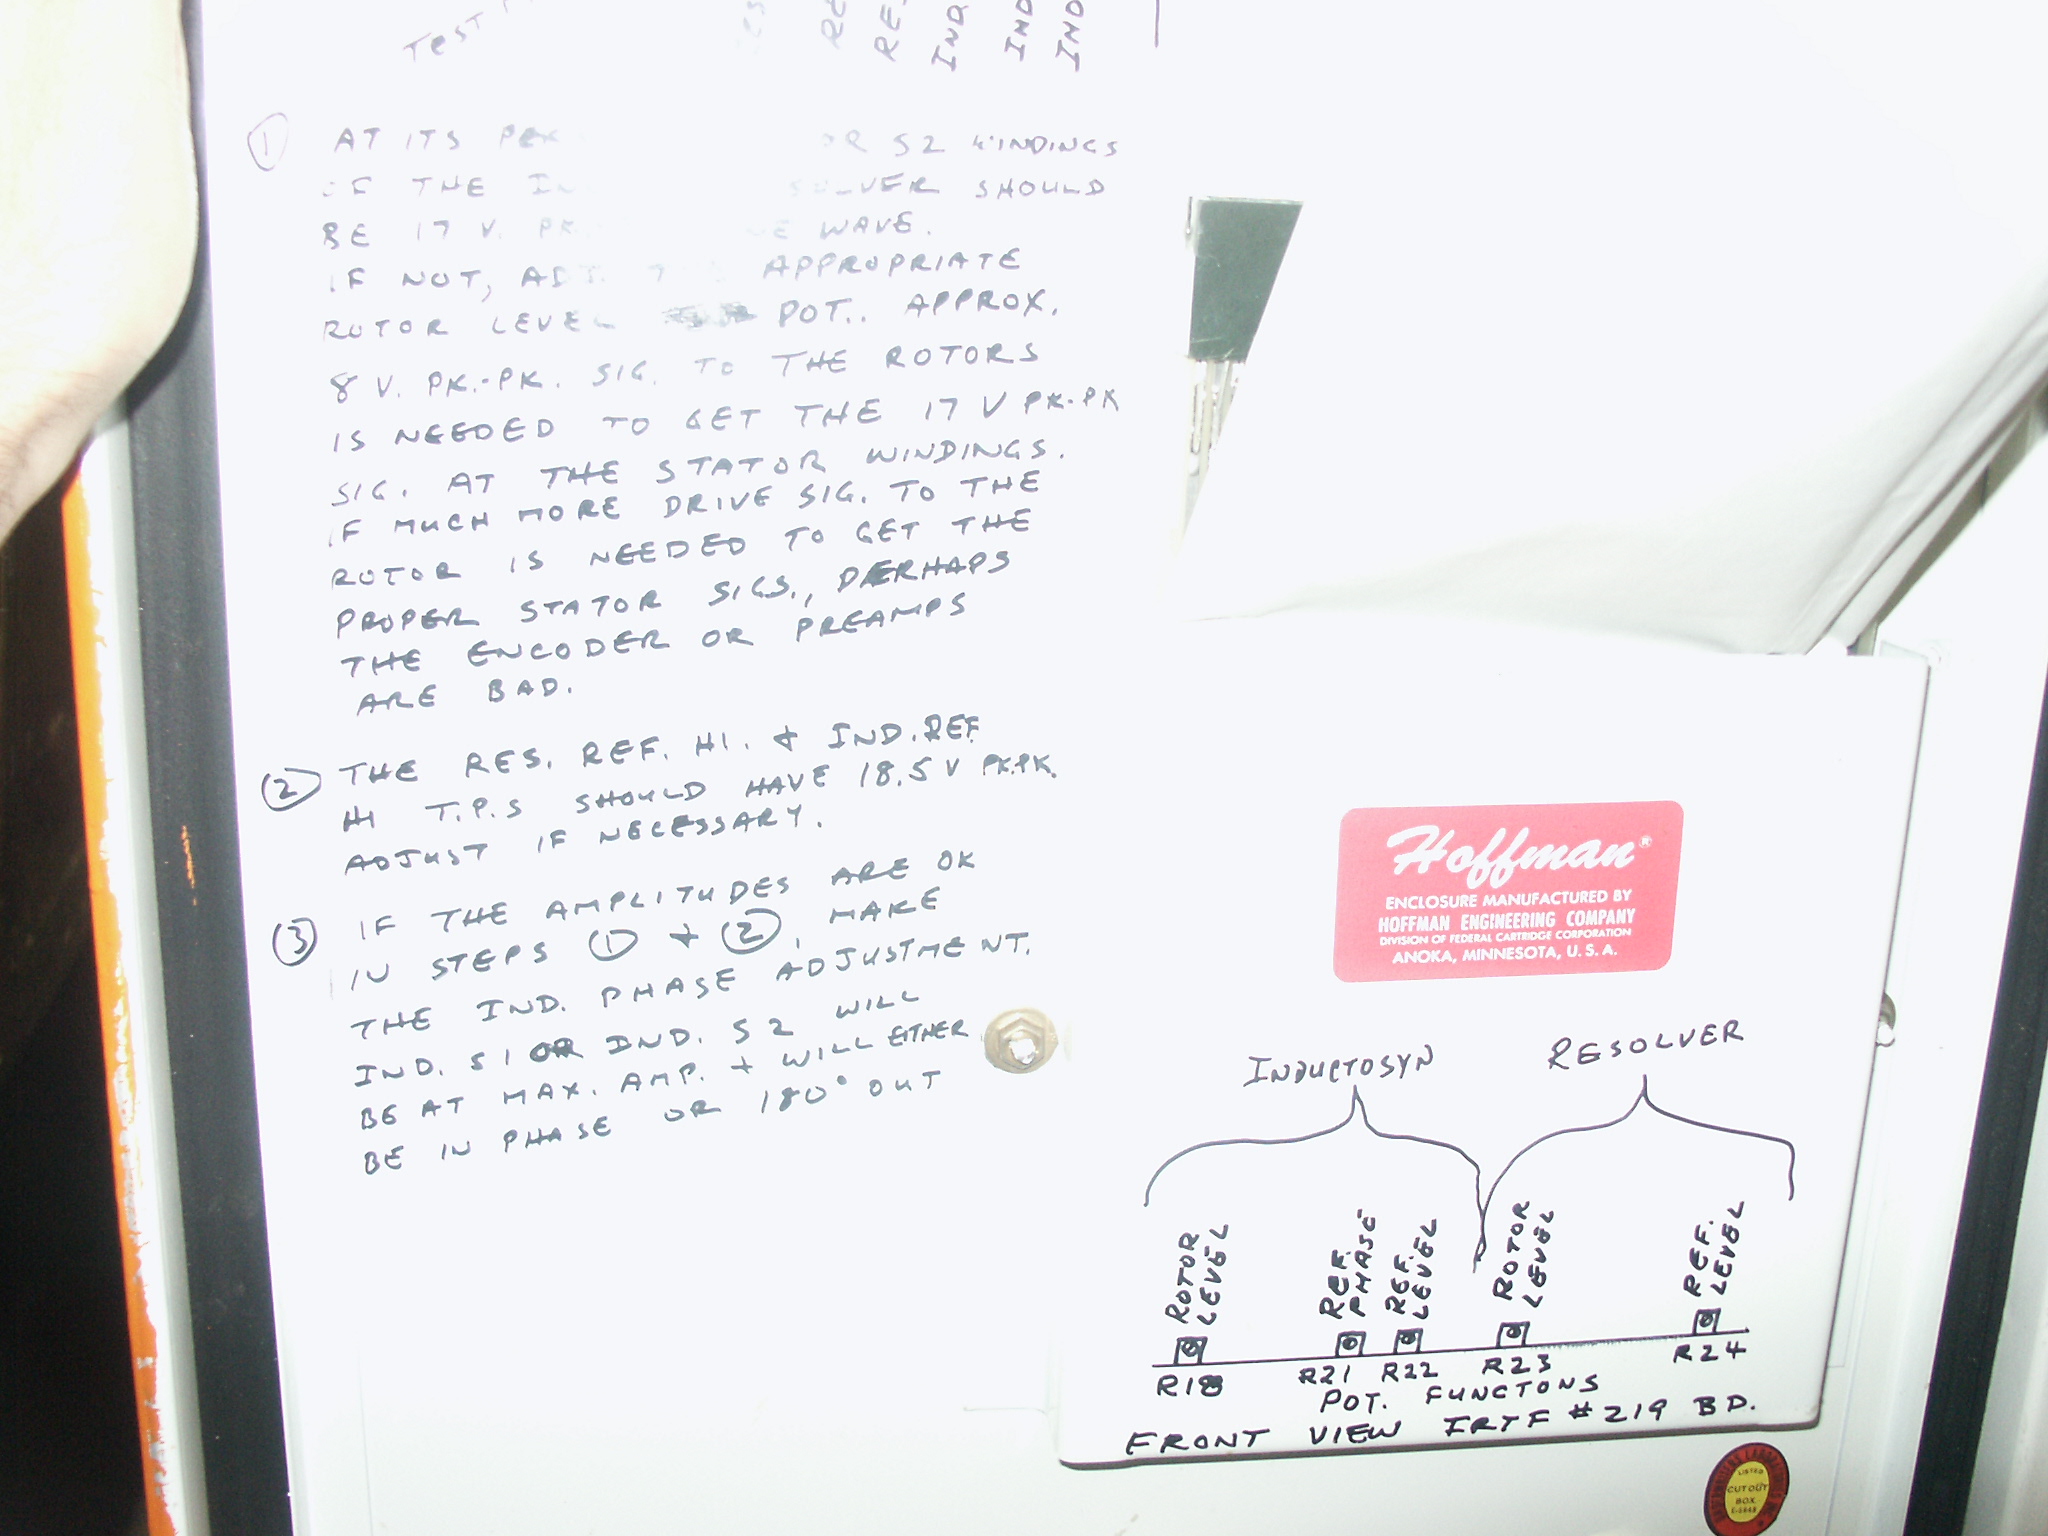 TEST
RE
RE
IND
IND
IND
① AT ITS OR S2 WINDINGS
OF THE SHOULD
BE 17 V. WAVE.
IF NOT, APPROPRIATE
ROTOR LEVEL POT.. APPROX.
8 V. PK.-PK. SIG. TO THE ROTORS
IS NEEDED TO GET THE 17 V PK-PK
SIG. AT THE STATOR WINDINGS.
IF MUCH MORE DRIVE SIG. TO THE
ROTOR IS NEEDED TO GET THE
PROPER STATOR SIGS., PERHAPS
THE ENCODER OR PREAMPS
ARE BAD.
② THE RES. REF. HI. + IND. REF.
HI T.P.S SHOULD HAVE 18.5 V PK.PK.
ADJUST IF NECESSARY.
③ IF THE AMPLITUDES ARE OK
IN STEPS ① + ②, MAKE
THE IND. PHASE ADJUSTMENT.
IND. S1 OR IND. S2 WILL
BE AT MAX. AMP. + WILL EITHER
BE IN PHASE OR 180° OUT
Hoffman®
ENCLOSURE MANUFACTURED BY
HOFFMAN ENGINEERING COMPANY
DIVISION OF FEDERAL CARTRIDGE CORPORATION
ANOKA, MINNESOTA, U.S.A.
INDUCTOSYN RESOLVER
ROTOR LEVEL
REF. PHASE
REF. LEVEL
ROTOR LEVEL
REF. LEVEL
R18 R21 R22 R23 R24
POT. FUNCTONS
FRONT VIEW IRTF #219 BD.
LISTED
CUTOUT
BOX